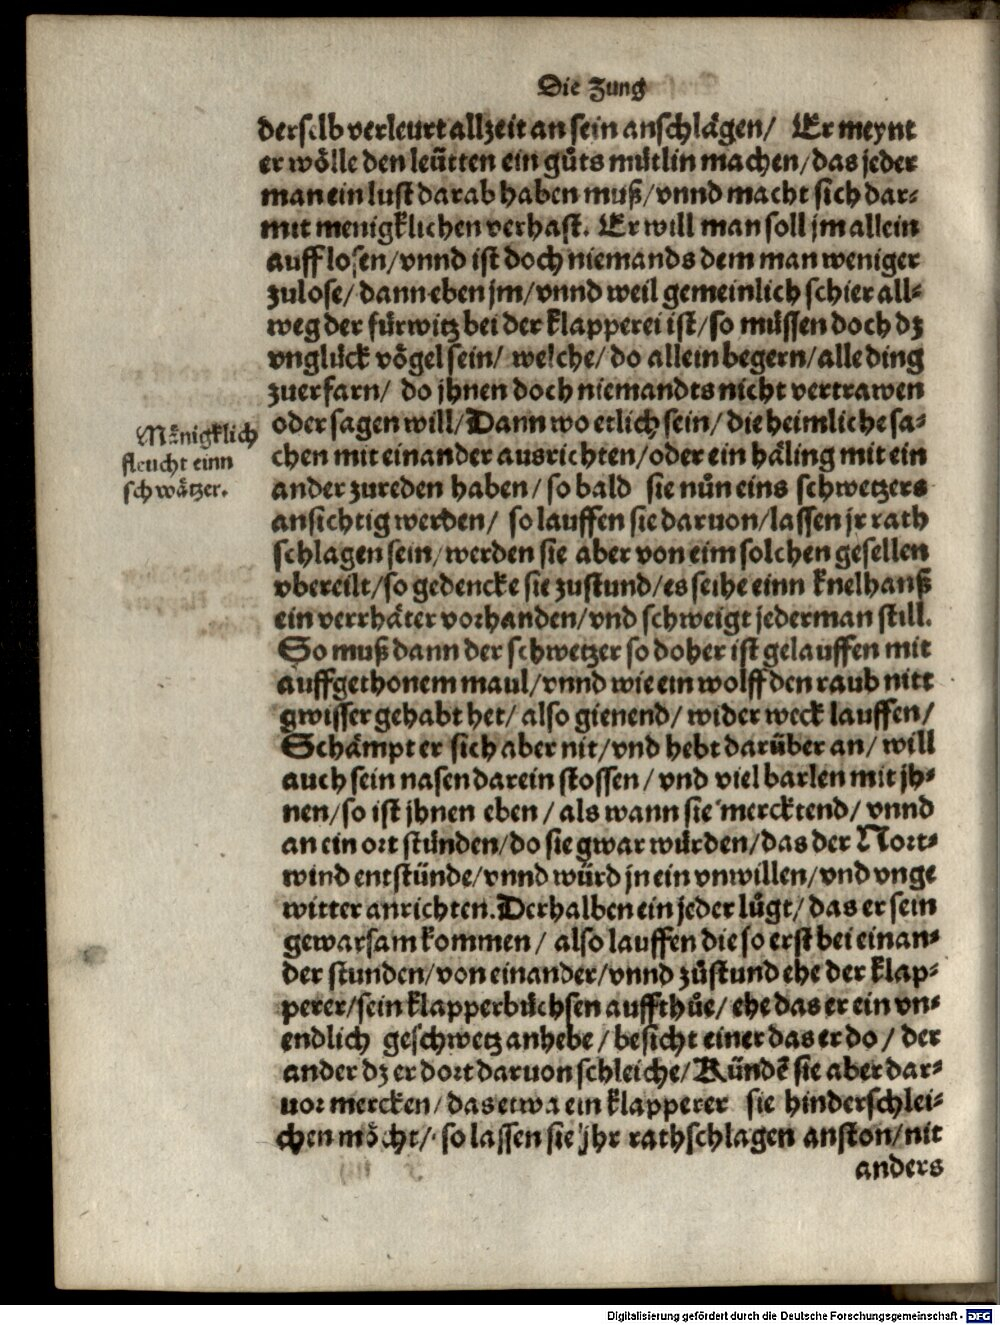 Die Zung
derselb verleurt allzeit an sein anschlägen/ Er meynt
er wölle den leütten ein gůts můtlin machen/das jeder
man ein lust darab haben muß/vnnd macht sich dar-
mit menigklichen verhast. Er will man soll jm allein
auff losen/vnnd ist doch niemands dem man weniger
zulose/dann eben jm/vnnd weil gemeinlich schier all-
weg der fürwitz bei der klapperei ist/so müssen doch dz
vnglück vögel sein/ welche/do allein begern/alle ding
zuerfarn/ do jhnen doch niemandts nicht vertrawen
oder sagen will/Dann wo etlich sein/die heimliche sa-
Mänigklich
fleucht einn
schwätzer.
chen mit einander ausrichten/oder ein häling mit ein
ander zureden haben/so bald sie nůn eins schwetzers
ansichtig werden/ so lauffen sie daruon/lassen jr rath
schlagen sein/werden sie aber von eim solchen gesellen
vbereilt/so gedencke sie zustund/es seihe einn knelhanß
ein verrhäter vorhanden/vnd schweigt jederman still.
So muß dann der schwetzer so doher ist gelauffen mit
auffgethonem maul/vnnd wie ein wolff den raub nitt
gwisser gehabt het/ also gienend/ wider weck lauffen/
Schämpt er sich aber nit/vnd hebt darüber an/ will
auch sein nasen darein stossen/ vnd viel barlen mit jh-
nen/so ist jhnen eben/ als wann sie mercktend/ vnnd
an ein ort stünden/do sie gwar würden/das der Nort-
wind entstünde/vnnd würd jn ein vnwillen/vnd vnge
witter anrichten.Derhalben ein jeder lůgt/das er sein
gewarsam kommen/ also lauffen die so erst bei einan-
der stunden/von einander/vnnd zůstund ehe der klap-
perer/sein klapperbüchsen auffthüe/ehe das er ein vn-
endlich geschwetz anhebe/besicht einer das er do/ der
ander dz er dort daruon schleiche/Kündē sie aber dar-
uor mercken/das etwa ein klapperer sie hinderschlei-
chen möcht/ so lassen sie jhr rathschlagen anston/nit
anders
Digitalisierung gefördert durch die Deutsche Forschungsgemeinschaft - DFG